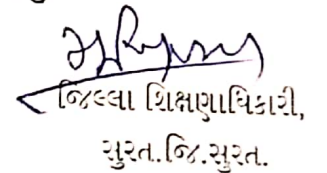 જિલ્લા શિક્ષણાધિકારી,
સુરત.જિ.સુરત.